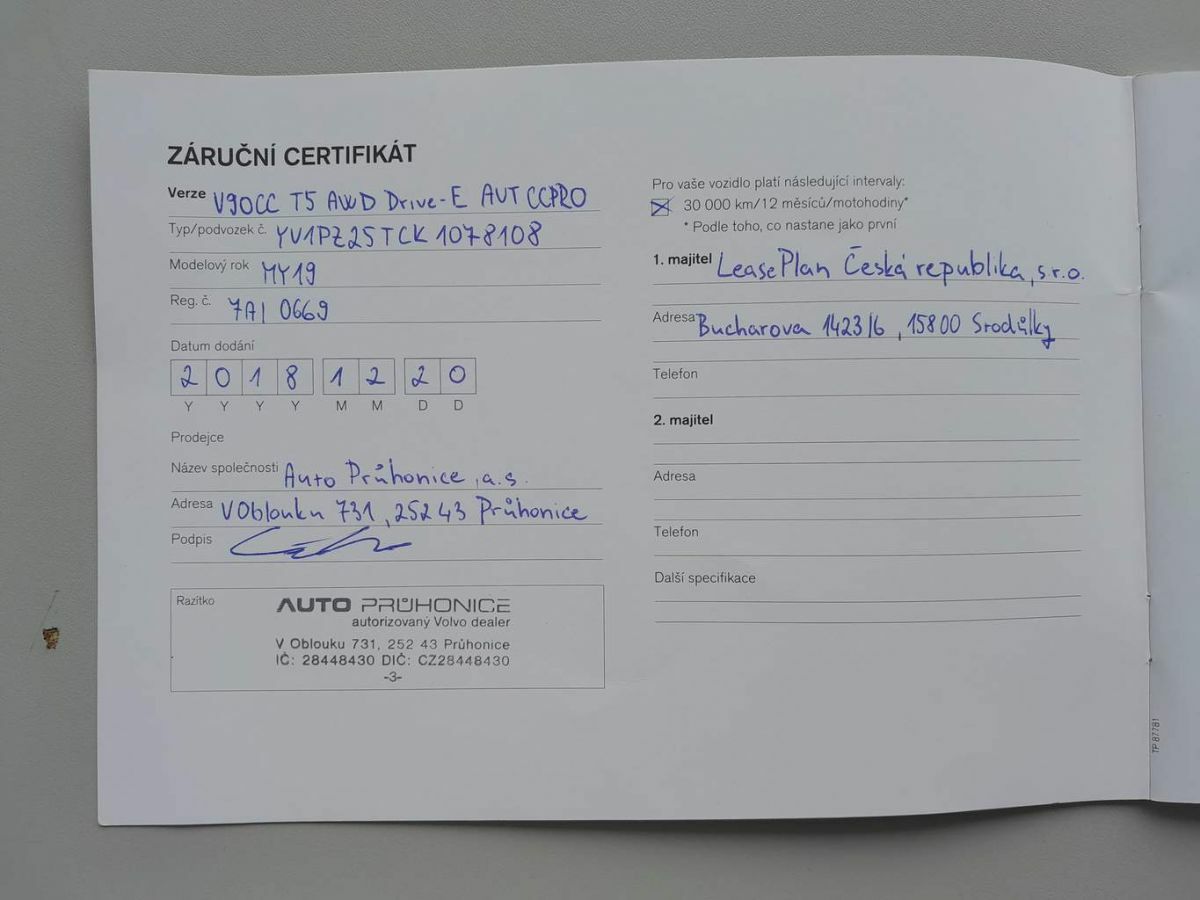 ZÁRUČNÍ CERTIFIKÁT
Verze V90CC T5 AWD Drive-E AUT CCPRO
Typ/podvozek č. YV1PZ25TCK1078108
Modelový rok MY19
Reg. č. 7AI 0669
Datum dodání
2 0 1 8 1 2 2 0
Y Y Y Y M M D D
Prodejce
Název společnosti Auto Průhonice, a.s.
Adresa V Oblouku 731, 252 43 Průhonice
Podpis
Razítko
AUTO PRŮHONICE
autorizovaný Volvo dealer
V Oblouku 731, 252 43 Průhonice
IČ: 28448430 DIČ: CZ28448430
-3-
Pro vaše vozidlo platí následující intervaly:
30 000 km/12 měsíců/motohodiny*
* Podle toho, co nastane jako první
1. majitel LeasePlan Česká republika, s.r.o.
Adresa Bucharova 1423/6, 15800 Srodůlky
Telefon
2. majitel
Adresa
Telefon
Další specifikace
TP 87781